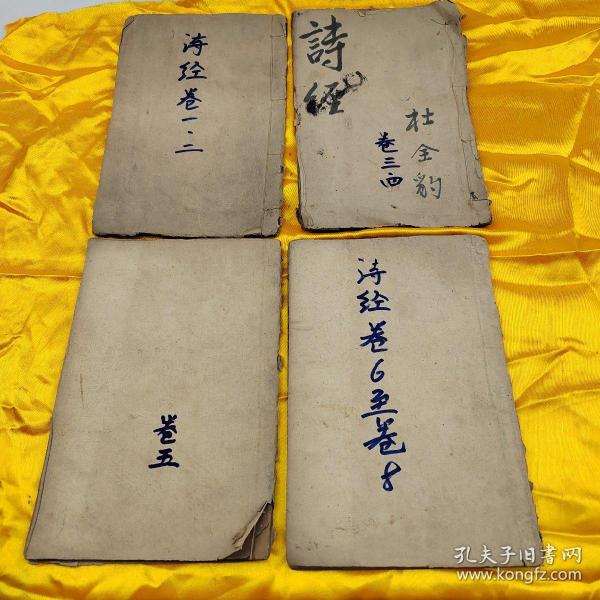 诗经卷一、二
詩經
杜全豹
卷三四
卷五
诗经卷6至卷8
孔夫子旧书网
www.kongfz.com